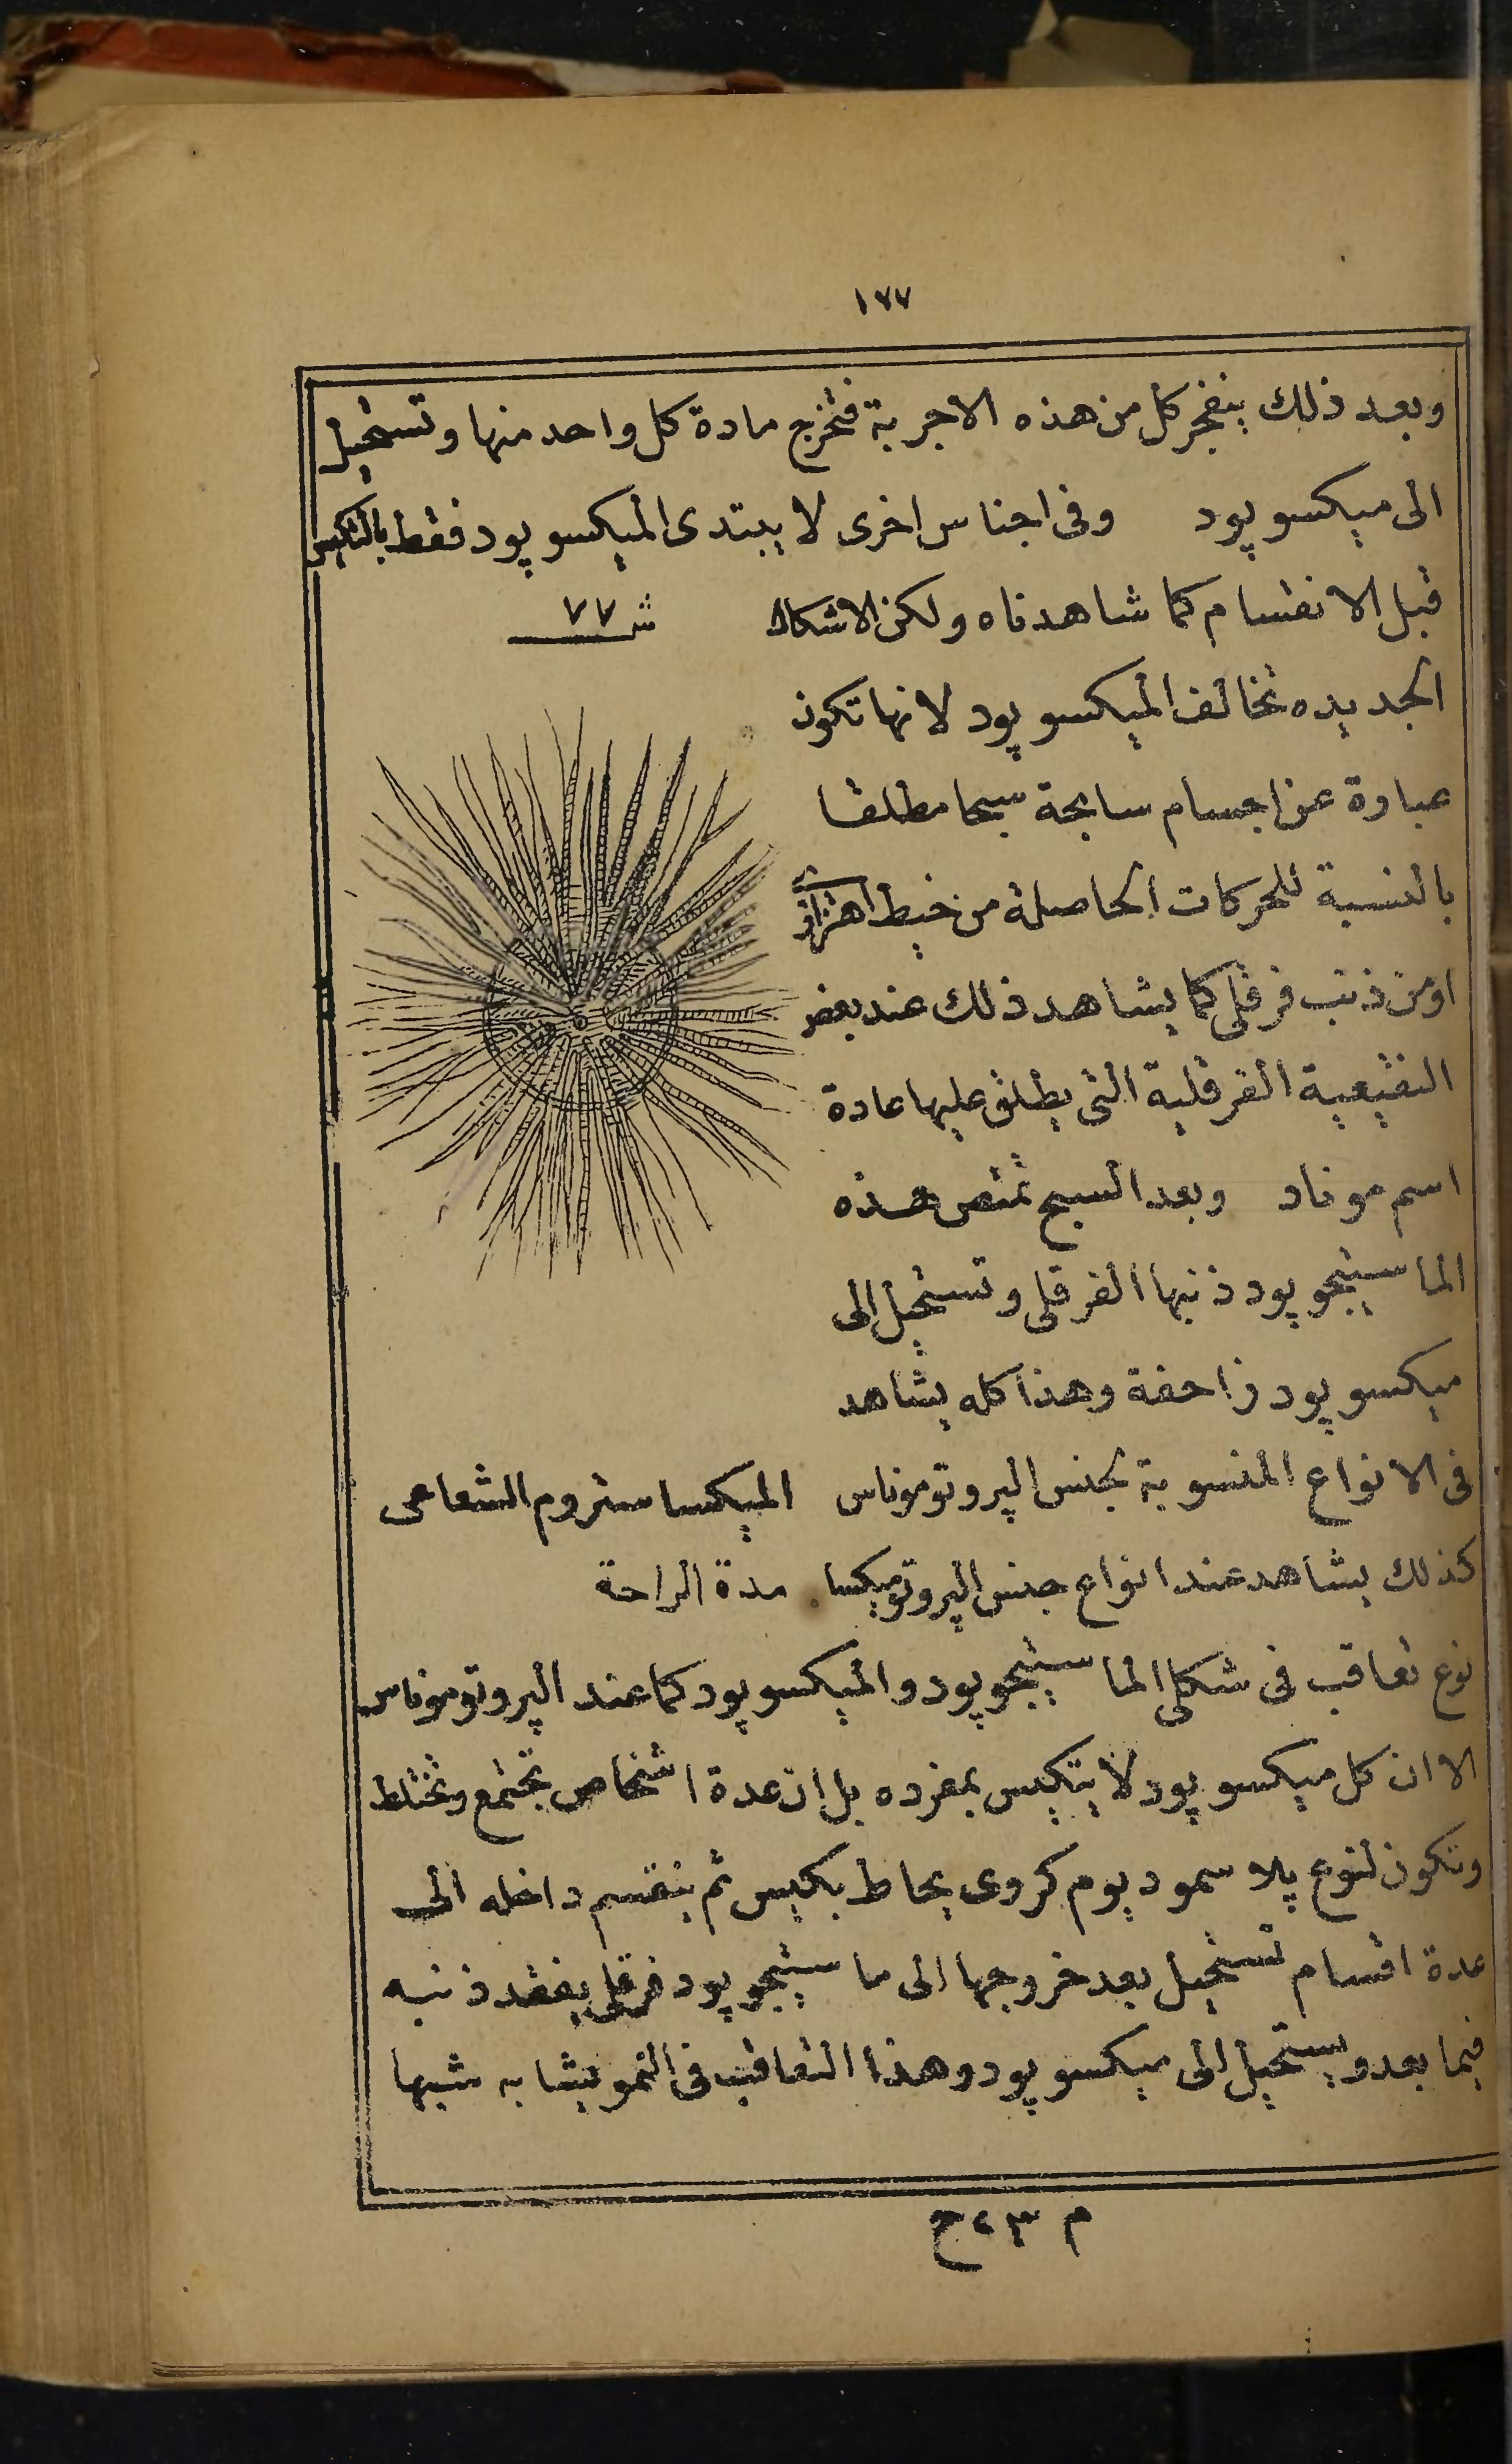 ١٧٧
وبعد ذلك ينفجر كل من هذه الاجربة فتخرج مادة كل واحد منها وتستحيل
الى ميكسوپود وفى اجناس اخرى لا يبتدى الميكسوپود فقط بالتكيس
قبل الانقسام كما شاهدناه ولكن الاشكال
ش ٧٧
الجديده تخالف الميكسوپود لانها تكون
عبارة عن اجسام سابحة سبحا مطلقا
بالنسبة للحركات الحاصلة من خيط اهتزازى
او من ذنب فرقلى كما يشاهد ذلك عند بعض
النقيعية الفرقلية التى يطلق عليها عادة
اسم موناد وبعد السبح تمتص هذه
الماستيجوپود ذنبها الفرقلى وتستحيل الى
ميكسوپود زاحفة وهذا كله يشاهد
فى الانواع المنسوبة لجنس الپروتوموناس الميكساستروم الشعاعى
كذلك يشاهد عند انواع جنس الپروتوميكسا مدة الراحة
نوع تعاقب فى شكلى الماستيجوپود والميكسوپود كما عند الپروتوموناس
الا ان كل ميكسوپود لا يتكيس بمفرده بل ان عدة اشخاص تجتمع وتختلط
وتكون لنوع پلاسموديوم كروى يحاط بكيس ثم ينقسم داخله الى
عدة اقسام تستحيل بعد خروجها الى ماستيجوپود فرقلى يفقد ذنبه
فيما بعد ويستحيل الى ميكسوپود وهذا التعاقب فى النمو يشابه شبها
م ٢٣ ح